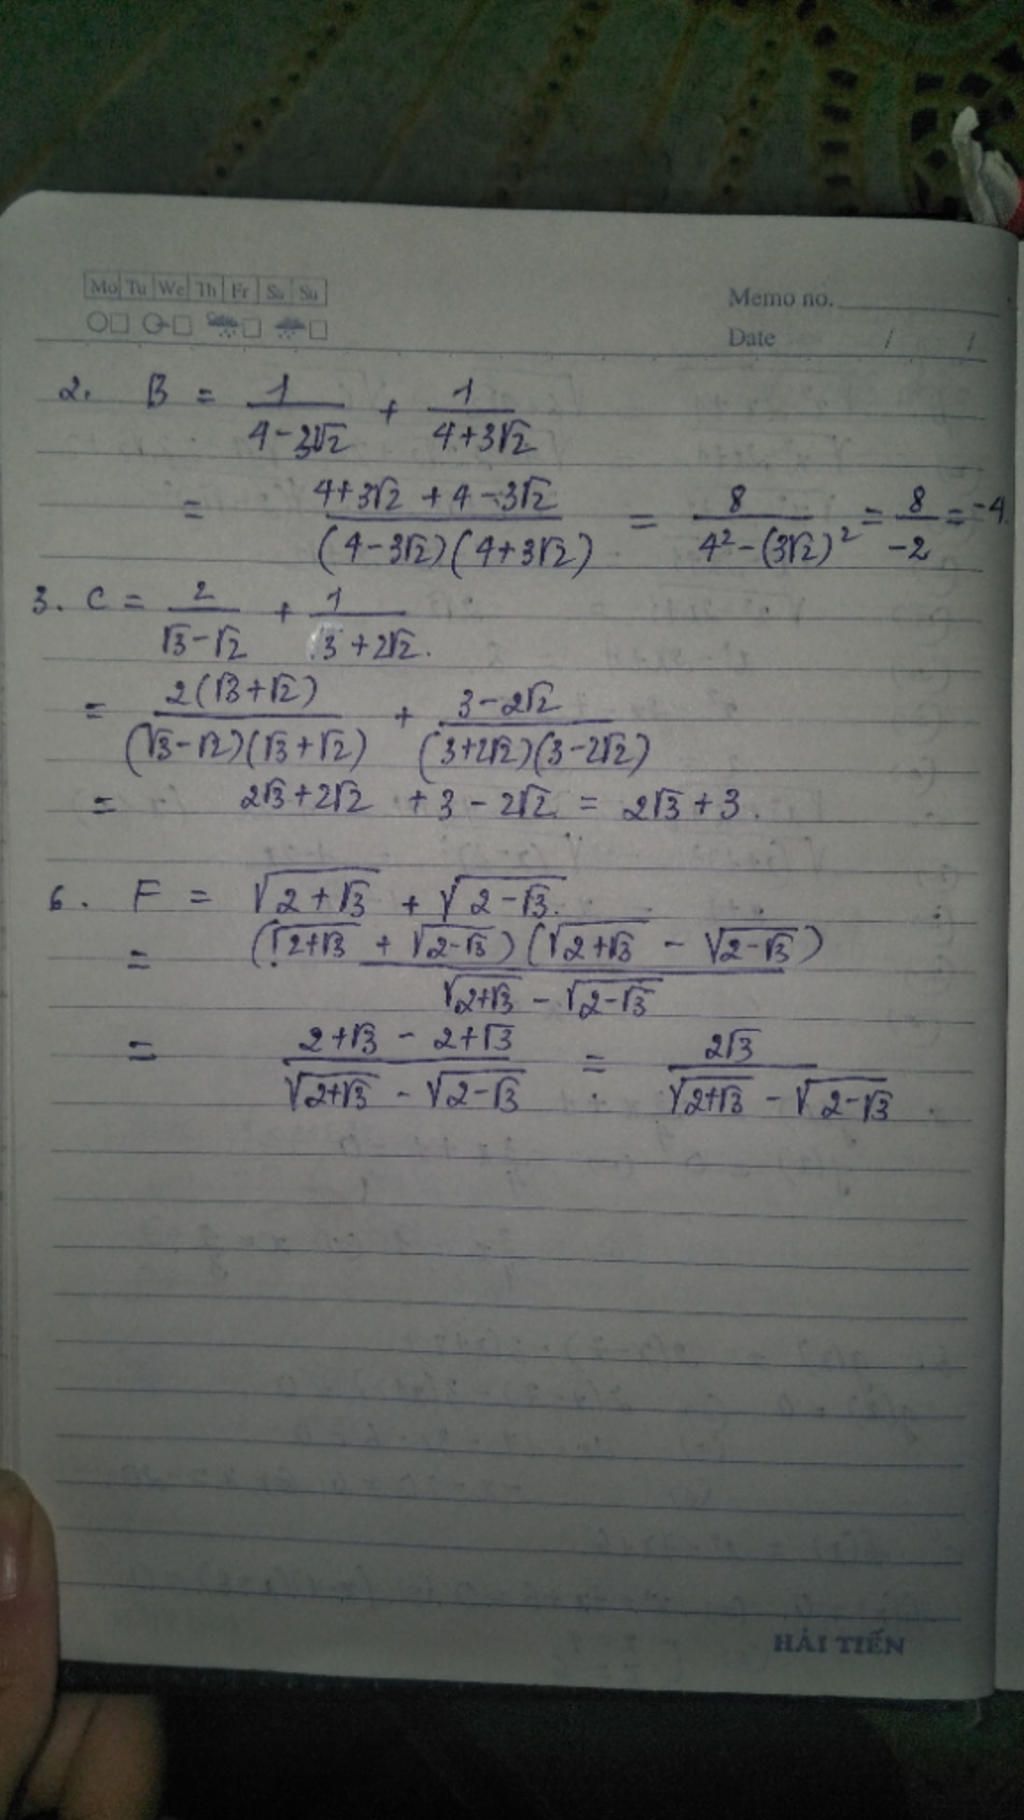 Mo Tu We Th Fr Sa Su
Memo no.
Date / /
2. B = 1/(4-3√2) + 1/(4+3√2)
= (4+3√2 + 4-3√2)/((4-3√2)(4+3√2)) = 8/(4²-(3√2)²) = 8/-2 = -4
3. C = 2/(√3-√2) + 1/(√3+2√2).
= 2(√3+√2)/((√3-√2)(√3+√2)) + (3-2√2)/((3+2√2)(3-2√2))
= 2√3+2√2 + 3 - 2√2 = 2√3+3.
6. F = √(2+√3) + √(2-√3).
= (√(2+√3) + √(2-√3))(√(2+√3) - √(2-√3))/(√(2+√3) - √(2-√3))
= (2+√3 - 2+√3)/(√(2+√3) - √(2-√3)) = 2√3/(√(2+√3) - √(2-√3))
HẢI TIẾN